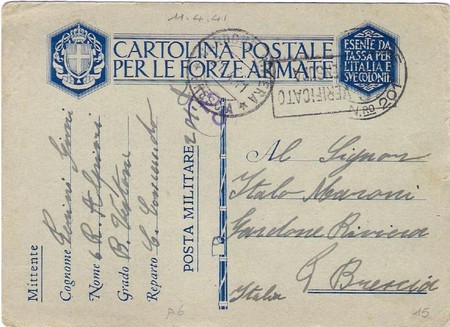 11.4.41
CARTOLINA POSTALE
PER LE FORZE ARMATE
ESENTE DA
TASSA PER
L'ITALIA E
SVE COLONIE
VERIFICATO
N.RO 201
Mittente
Cognome
Nome 6 R. Alpini
Grado B.
Reparto C. Comando
POSTA MILITARE
Al Signor
Italo Maroni
Gardone Riviera
Brescia
Italia
A6
15